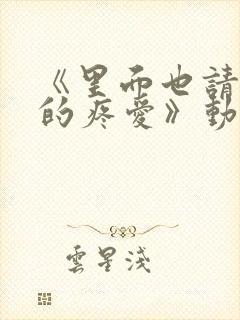 《里而也請
的疼愛》動
雲星淺